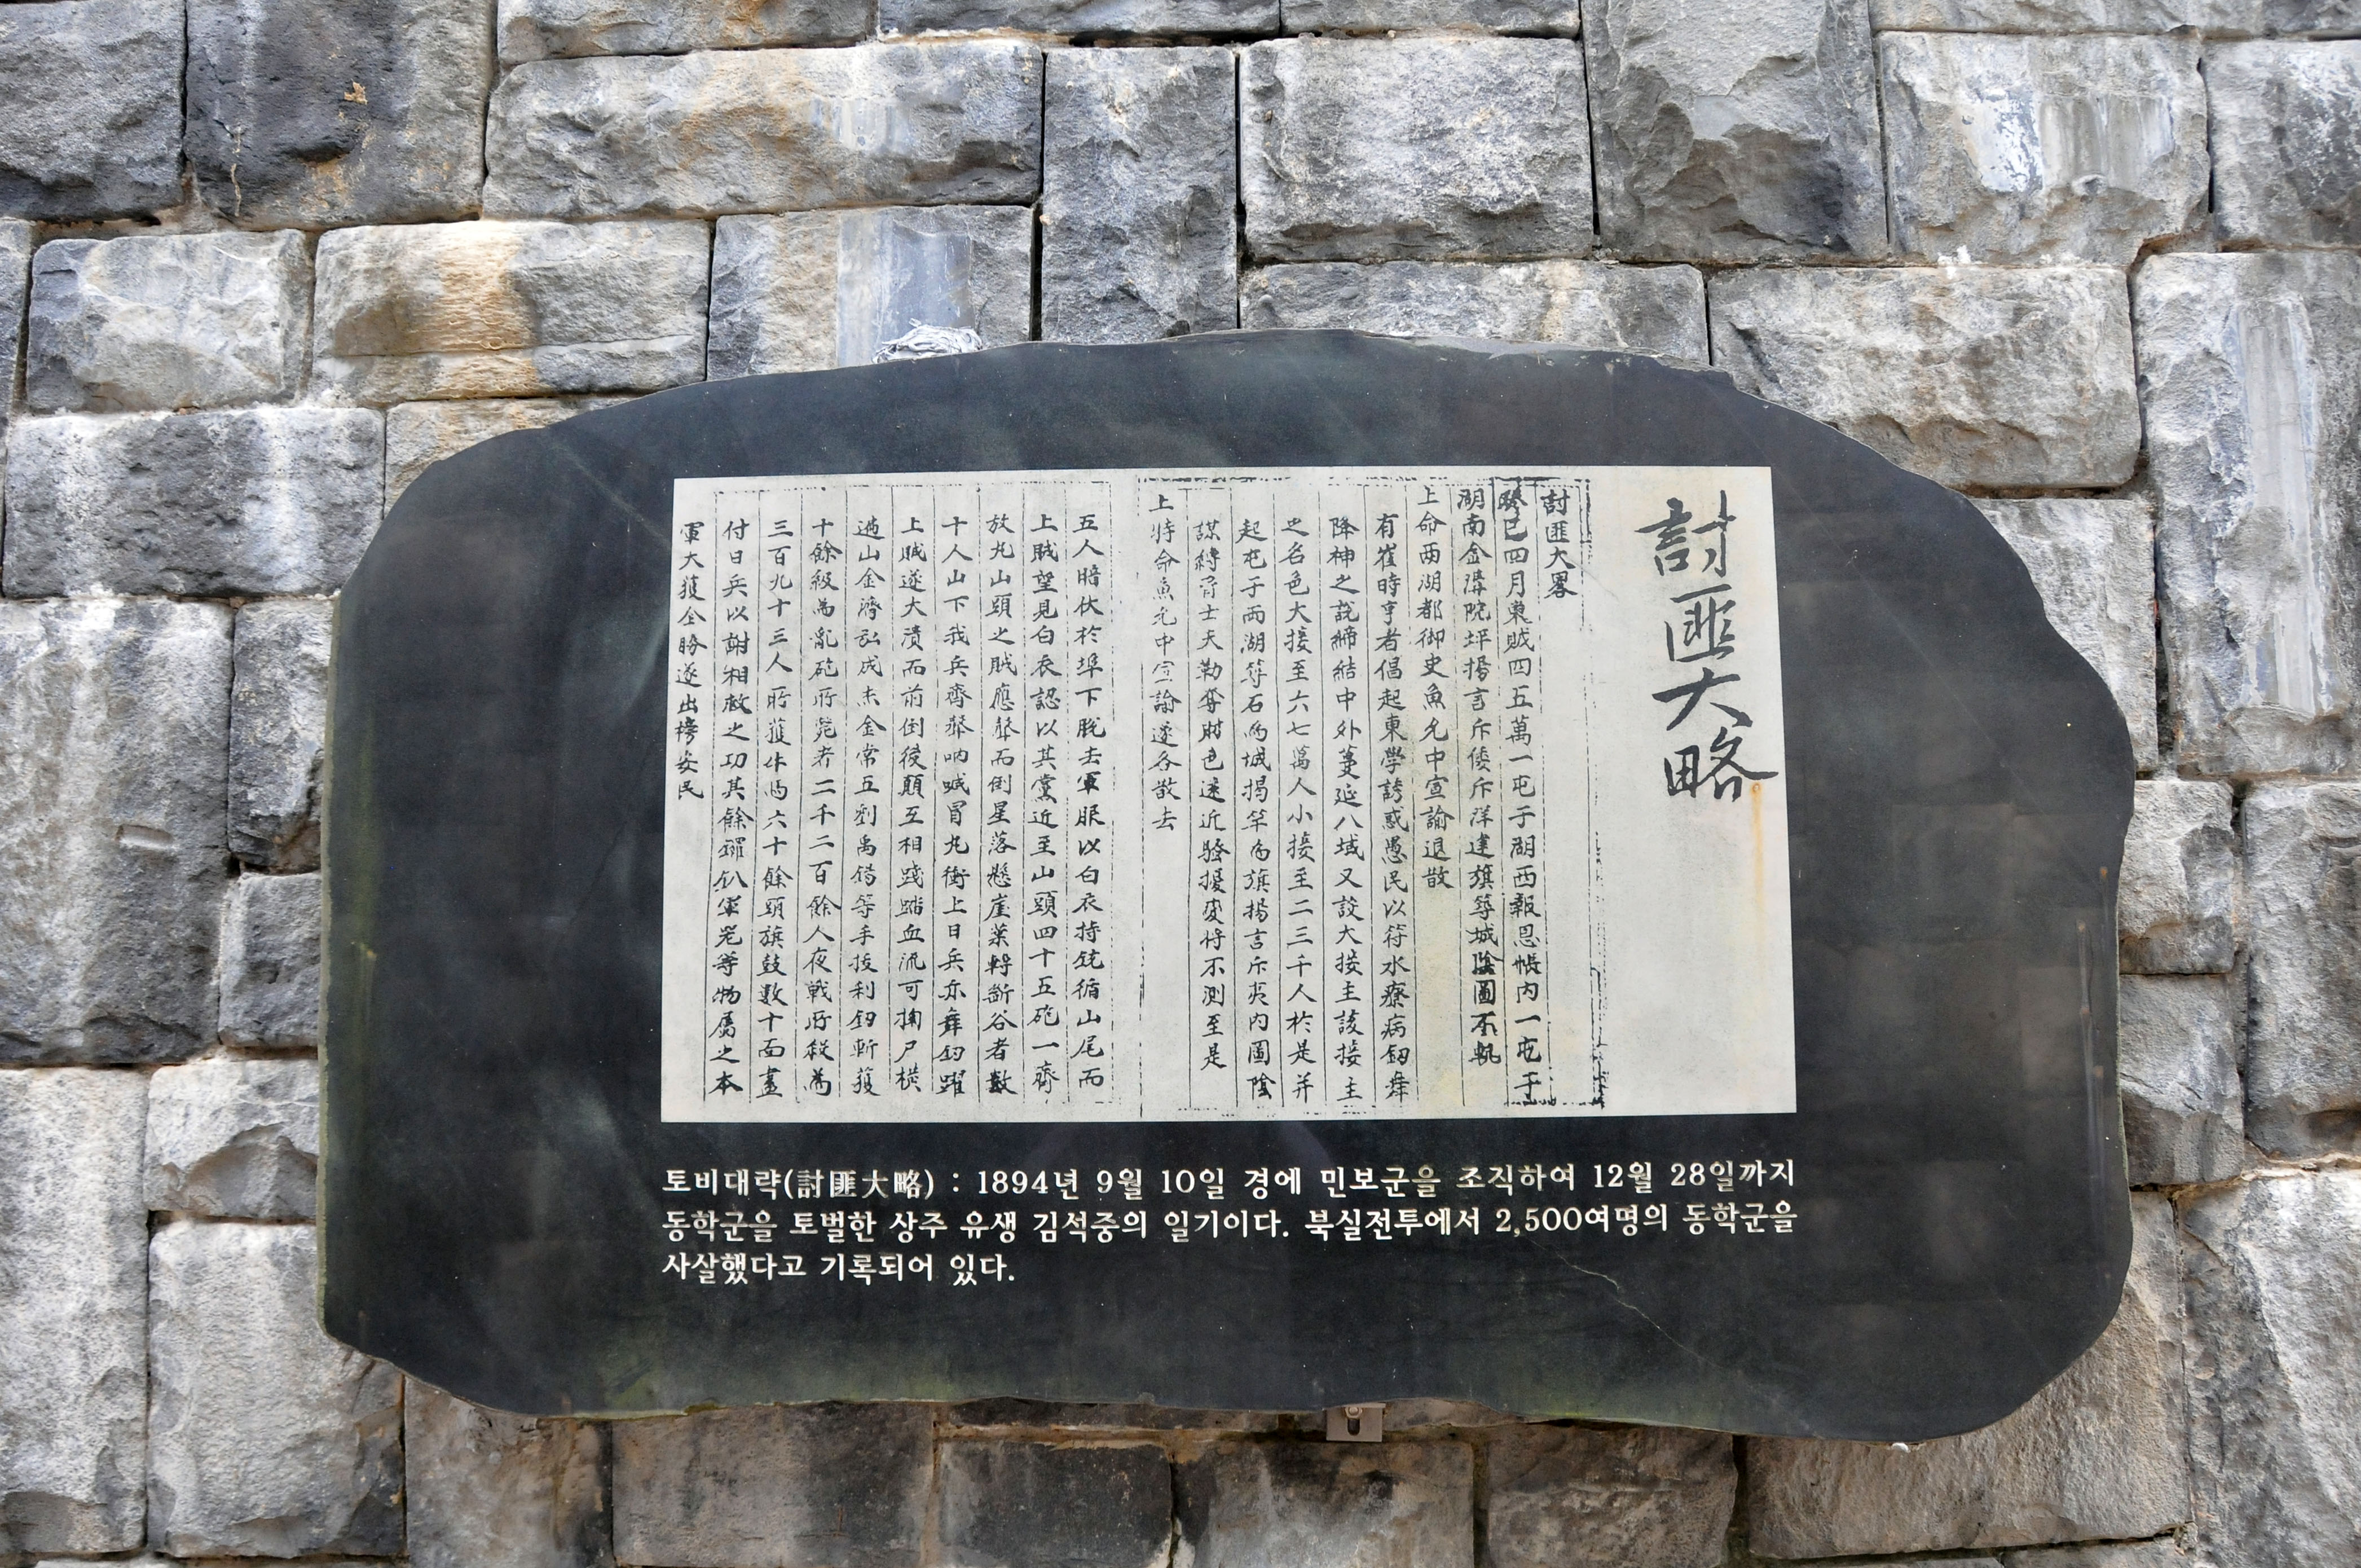 討匪大略
討匪大畧
癸巳四月東賊四五萬一屯于湖西報恩帳內一屯于
湖南金溝院坪揚言斥倭斥洋建旗等城陰圖不軌
上命兩湖都御史魚允中宣諭退散
有崔時亨者倡起東學誇惑愚民以符水療病釰舞
降神之說締結中外蔓延八域又設大接主該接主
之名色大接至六七萬人小接至二三千人於是并
起屯于兩湖等石為城揭竿為旗揚言斥夷內圖陰
謀縛脅士夫勒奪財色遠近騷擾变将不測至是
上特命魚允中宣諭遂各散去
五人暗伏於埠下脫去軍服以白衣持銃循山尾而
上賊望見白衣認以其黨近至山頭四十五砲一齊
放丸山頭之賊應聲而倒星落懸崖葉轉斷谷者數
十人山下我兵齊聲吶喊冒丸衝上日兵亦舞釰躍
上賊遂大潰而前倒後顚互相踐踏血流可掬尸橫
遍山金濟弘成金常五禹錫等手拔利釰斬獲
十餘級為亂砲所斃者二千二百餘人夜戰所殺為
三百九十三人所獲牛馬六十餘頭旗鼓數十面盡
付日兵以謝相救之功其餘軍器等物屬之本
軍大獲全勝遂出榜安民
토비대략(討匪大略) : 1894년 9월 10일 경에 민보군을 조직하여 12월 28일까지
동학군을 토벌한 상주 유생 김석중의 일기이다. 북실전투에서 2,500여명의 동학군을
사살했다고 기록되어 있다.